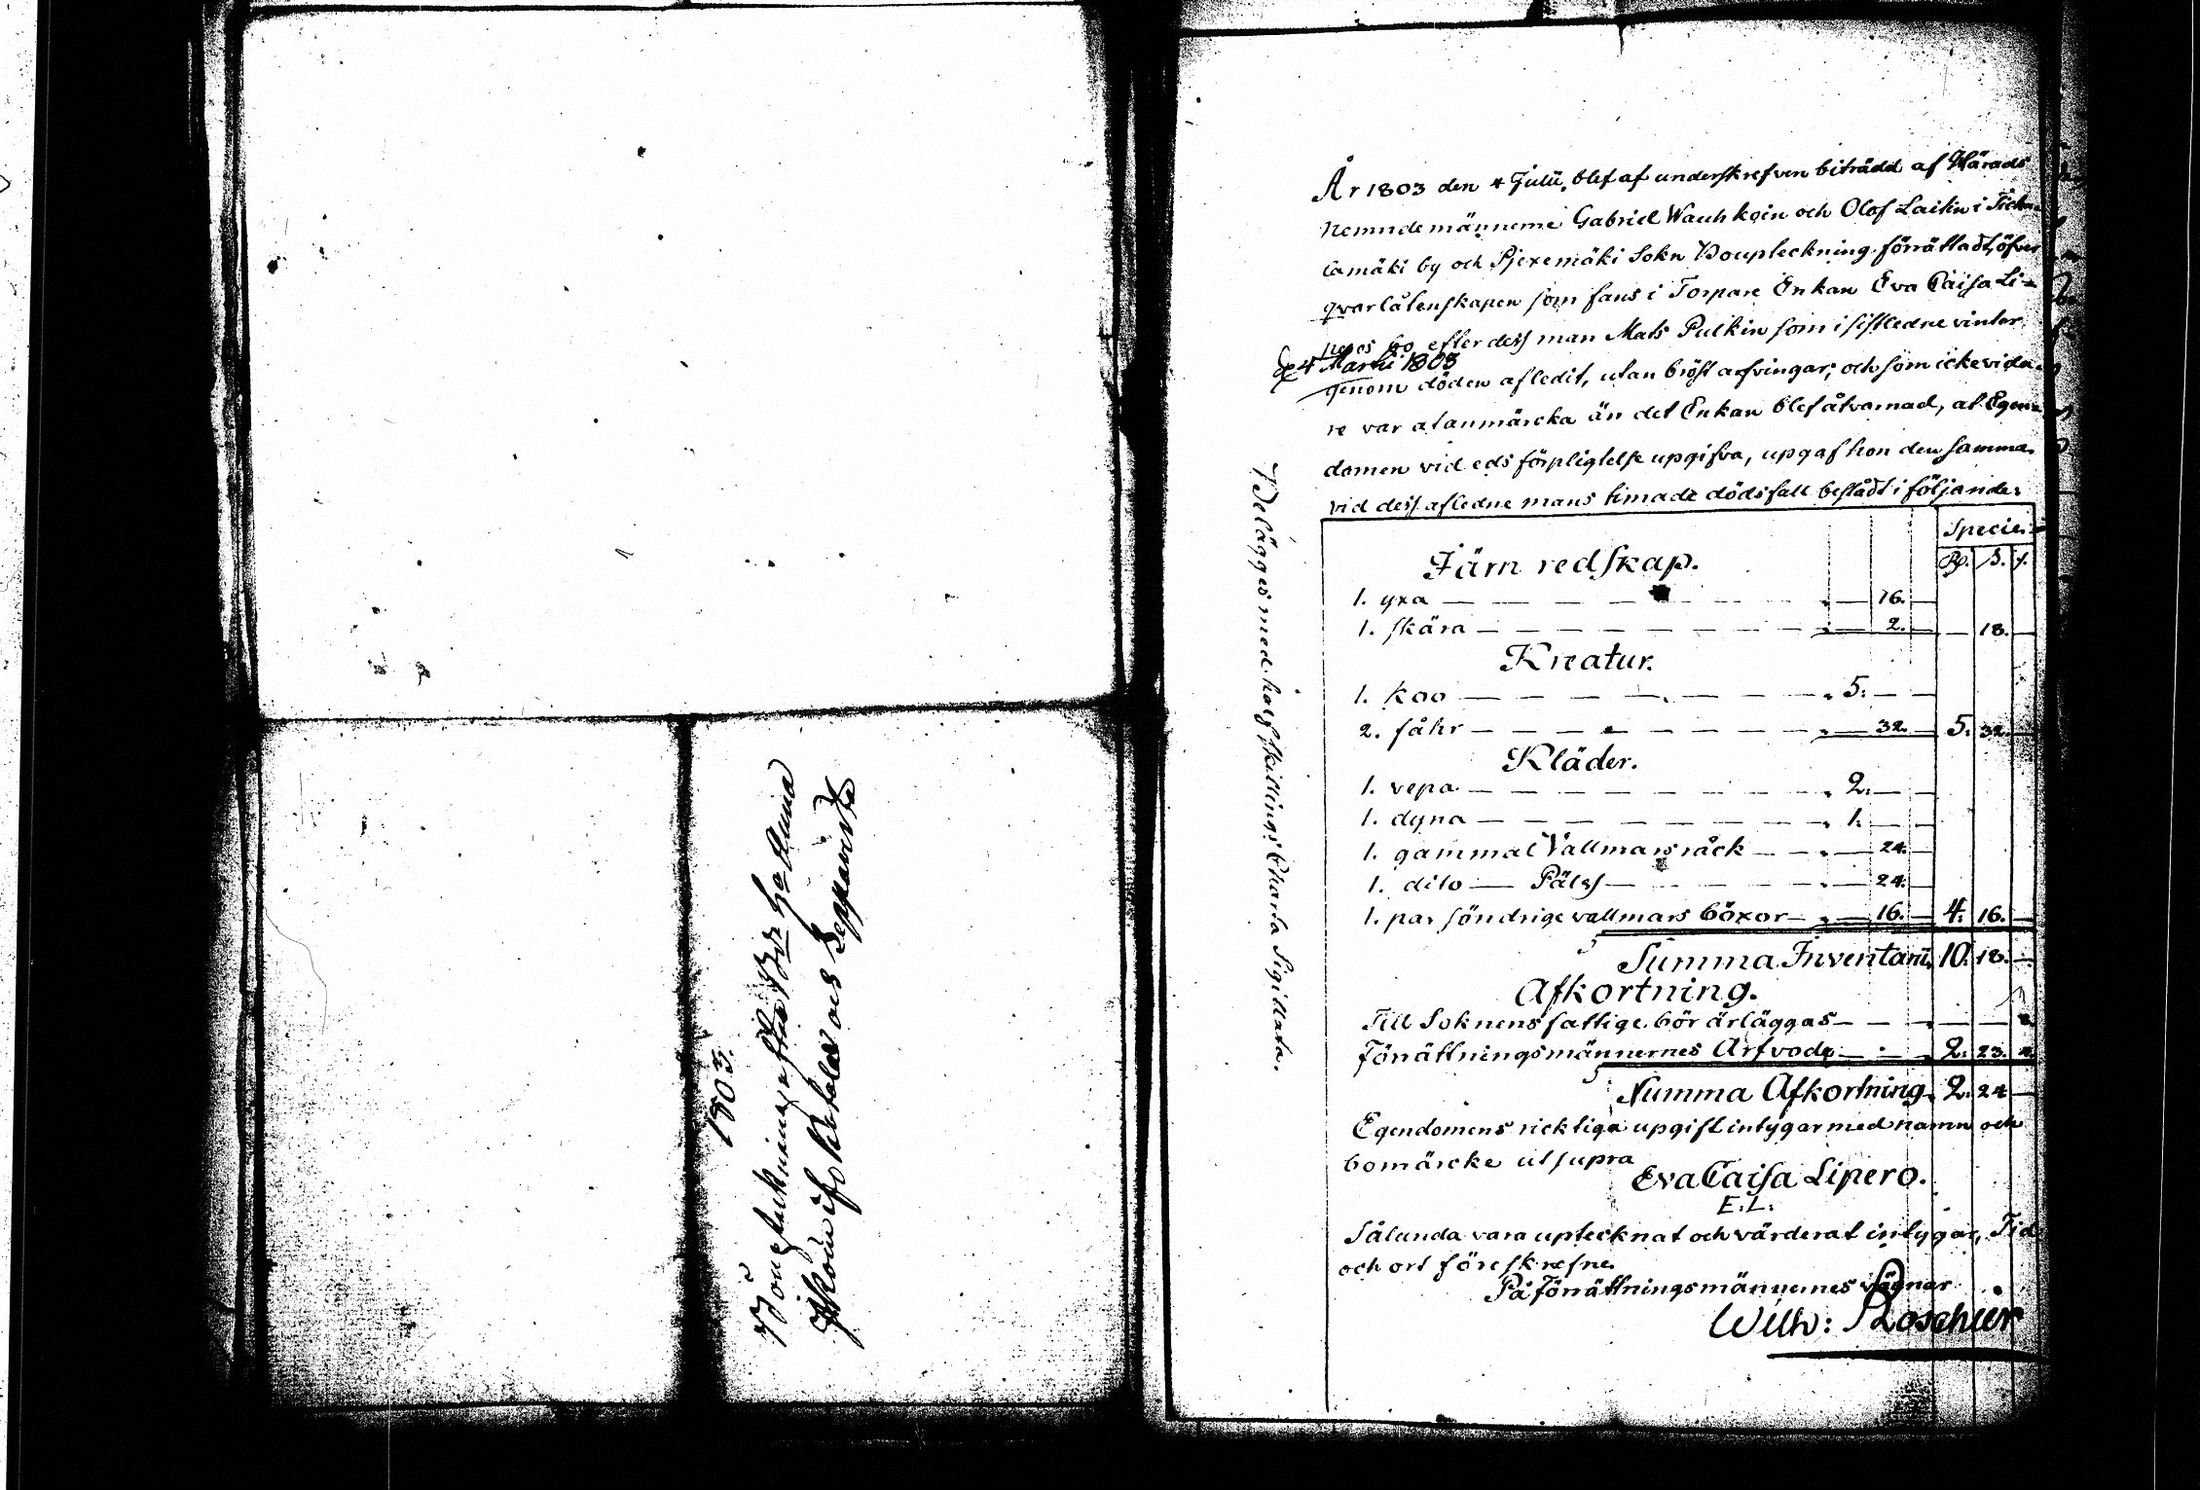 1803.
År 1803 den 4 Julii, blef af underskrefven biträdd af Härads
Nemndemännerne Gabriel Wauhkoin och Olof Laitin i Tick
lamäki by och Pjexemäki Sokn Bouptekning förrättadt, öfver
qvarlåtenskapen som fans i Torpare Enkan Eva Caisa Li-
peros bo efter dess man Mats Pulkin som i sistledne vinter
4 Martii 1803
genom döden afledit, utan bröst arfvingar; och som icke vida
re var at anmärcka än det Enkan blef åtvarnad, at Egen=
domen vid eds förpligtelse upgifva, upgaf hon den samma
vid dess afledne mans timade dödsfall bestådt i följande:
Specie.
Rd. S. r.
Järn redskap.
1. yxa — — — — 16. —
1. skära — — — — 2. — — 18. —
Kreatur.
1. koo — — — — 5. — —
2. fåhr — — — — 32. — 5. 32. —
Kläder.
1. vepa — — — — 2. — —
1. dyna — — — — 1. — —
1. gammal Vallmars råck — — 24. —
1. dito — Päls — — — 24. —
1. par söndrige vallmars böxor — 16. — 4. 16. —
Summa Inventarii 10. 18. —
Afkortning.
Till Soknens fattige bör ärläggas — — — —
Förrättningsmännernes Arfvode — — 2. 23.
Summa Afkortning. 2. 24 —
Egendomens ricktiga upgift intygar med namn och
bomärcke ut supra
Eva Caisa Lipero.
E. L.
Sålunda vara uptecknat och värderat intygar, Tid
och ort föreskrefne.
På Förrättningsmännernes vägnar
Wilh: Roschier
Belägges med half skillings Charta Sigillata.